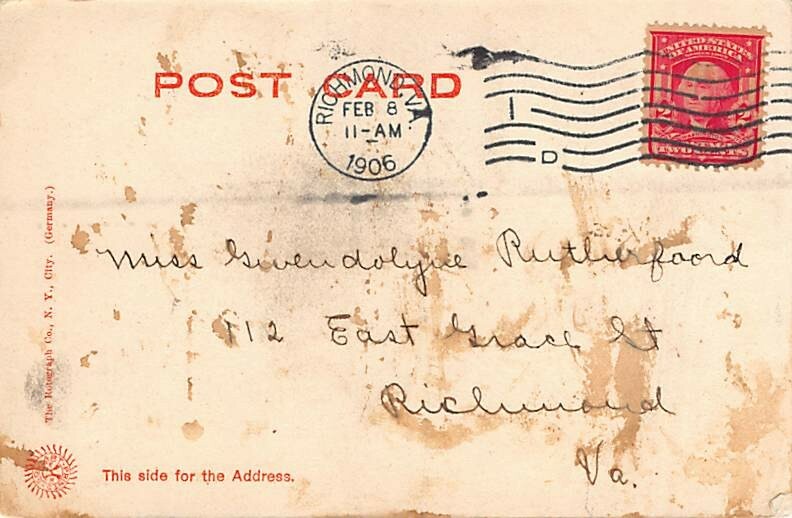 POST CARD
RICHMOND, VA.
FEB 8
11-AM
1906
1
D
UNITED STATES
OF AMERICA
2 2
TWO CENTS
Miss Gwendolyne Rutherfoord
112 East Grace St
Richmond
Va.
The Rotograph Co., N. Y., City. (Germany.)
This side for the Address.